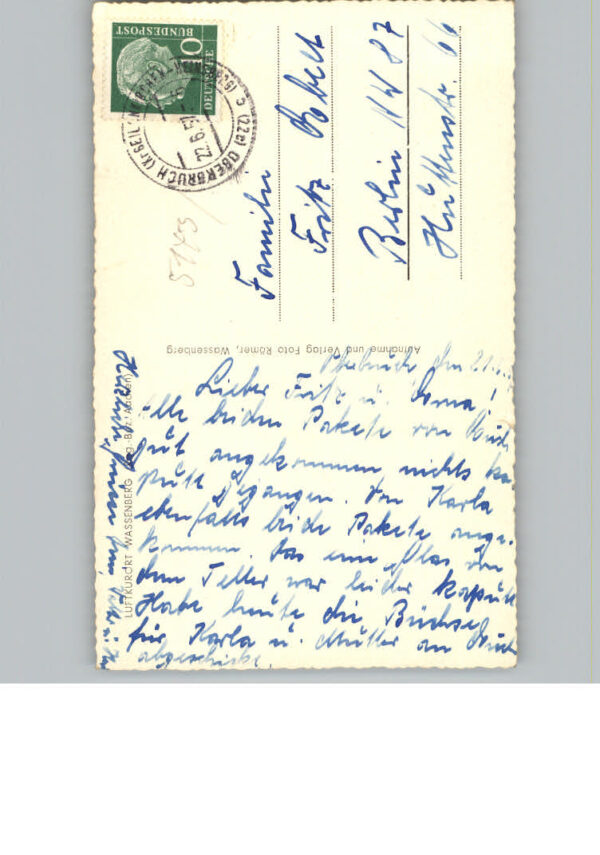 DEUTSCHE
BUNDESPOST
10
(22c) OBERBRUCH (Kr GEILENKIRCHEN-HEINSBERG)
22.6.57
5173
Familie
Fritz Abelt
Berlin NW 87
Huttenstr. 66
Aufnahme und Verlag Foto Römer, Wassenberg
LUFTKURORT WASSENBERG (Reg.-Bez. Aachen)
Oberbruch den 21.
Lieber Fritz u. Erna!
Alle beiden Pakete von Euch
gut angekommen nichts ka-
putt gegangen. Von Karla
ebenfalls beide Pakete ange-
kommen. Das eine Glas von
dem Teller war leider kaputt
Habe heute die Büchse
für Karla u. Mutter an Euch
abgeschickt.
Herzliche Grüsse